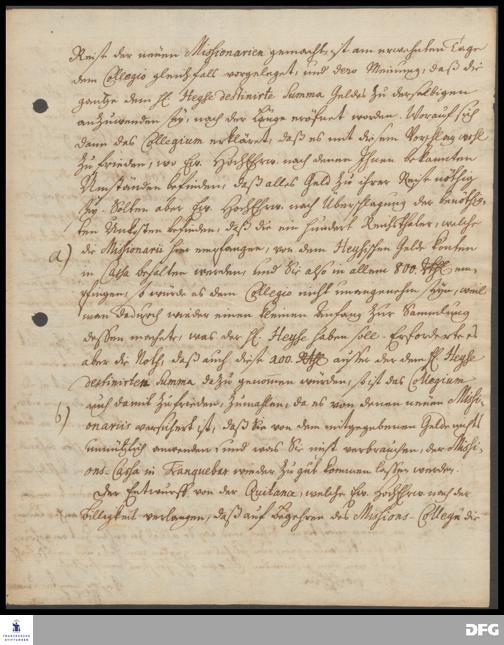 Reise der neuen Missionarien gemacht, ist am erwehnten Tage
dem Collegio gleichfall vorgeleget, und dero Meinung, daß die
gantze dem H. Heyse destinirte Summa Geldes zu derselbigen
anzuwenden sey, nach der Länge eröfnet worden. Worauf sich
dann das Collegium erkläret, daß es mit diesem Vorschlag wohl
zu frieden, wo Ew. HochEhrw. nach denen Ihnen bekanten
Umständen befinden, daß alles Geld zu ihrer Reise nöthig
sey. Solten aber Ew. HochEhrw. nach Überschlagung der benöthig-
ten Unkosten befinden, daß die ein hundert Reichsthaler, welche
a) die Missionarii hier empfangen, von dem Heysischen Gelde konten
in Cassa behalten werden, und Sie also in allem 800. Rthl em-
pfingen, so würde es dem Collegio nicht unangenehm seyn, weil
man dadurch wieder einen kleinen Anfang zur Sammlung
dessen machete, was der H. Heyse haben soll. Erforderte es
aber die Noth, daß auch diese 200. Rthl ausser der dem H. Heyse
destinirten Summa dazu genommen würden, so ist das Collegium
b) auch damit zufrieden, zumahlen, da es von denen neuen Missi-
onariis versichert ist, daß sie von dem mitgegebenen Gelde nichts
unnützlich anwenden, und was Sie nicht verbrauchen, der Missi-
ons-Cassa in Tranquebar wieder zu gut kommen lassen werden.
Der Entwurff von der Quitance, welche Ew. HochEhrw. nach der
Billigkeit verlangen, daß auf Begehren des Missions-Collegii die
FRANCKESCHE STIFTUNGEN
DFG